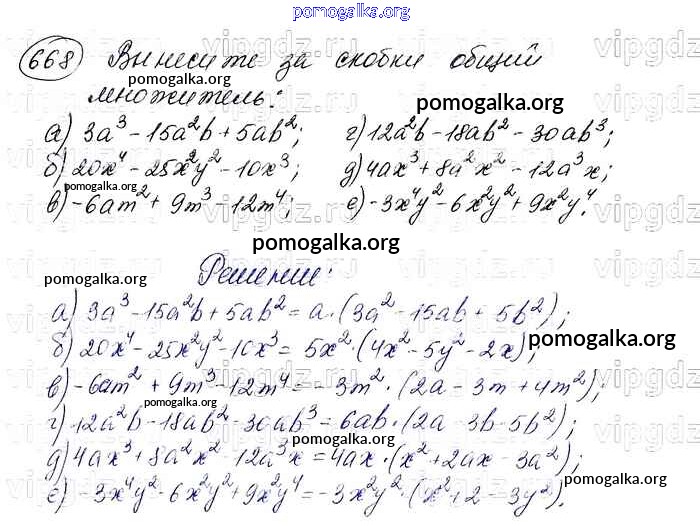 pomogalka.org
668 Вынесите за скобки общий
pomogalka.org
множитель:
pomogalka.org
а) 3a³ - 15a²b + 5ab²; г) 12a²b - 18ab² - 30ab³;
б) 20x⁴ - 25x²y² - 10x³; д) 4ax³ + 8a²x² - 12a³x;
pomogalka.org
в) -6am² + 9m³ - 12m⁴; е) -3x⁴y² - 6x²y² + 9x²y⁴.
pomogalka.org
Решение:
pomogalka.org
а) 3a³ - 15a²b + 5ab² = a·(3a² - 15ab + 5b²);
pomogalka.org
б) 20x⁴ - 25x²y² - 10x³ = 5x²·(4x² - 5y² - 2x);
в) -6am² + 9m³ - 12m⁴ = -3m²·(2a - 3m + 4m²);
pomogalka.org
г) 12a²b - 18ab² - 30ab³ = 6ab·(2a - 3b - 5b²);
pomogalka.org
д) 4ax³ + 8a²x² - 12a³x = 4ax·(x² + 2ax - 3a²);
pomogalka.org
е) -3x⁴y² - 6x²y² + 9x²y⁴ = -3x²y²·(x² + 2 - 3y²).
pomogalka.org